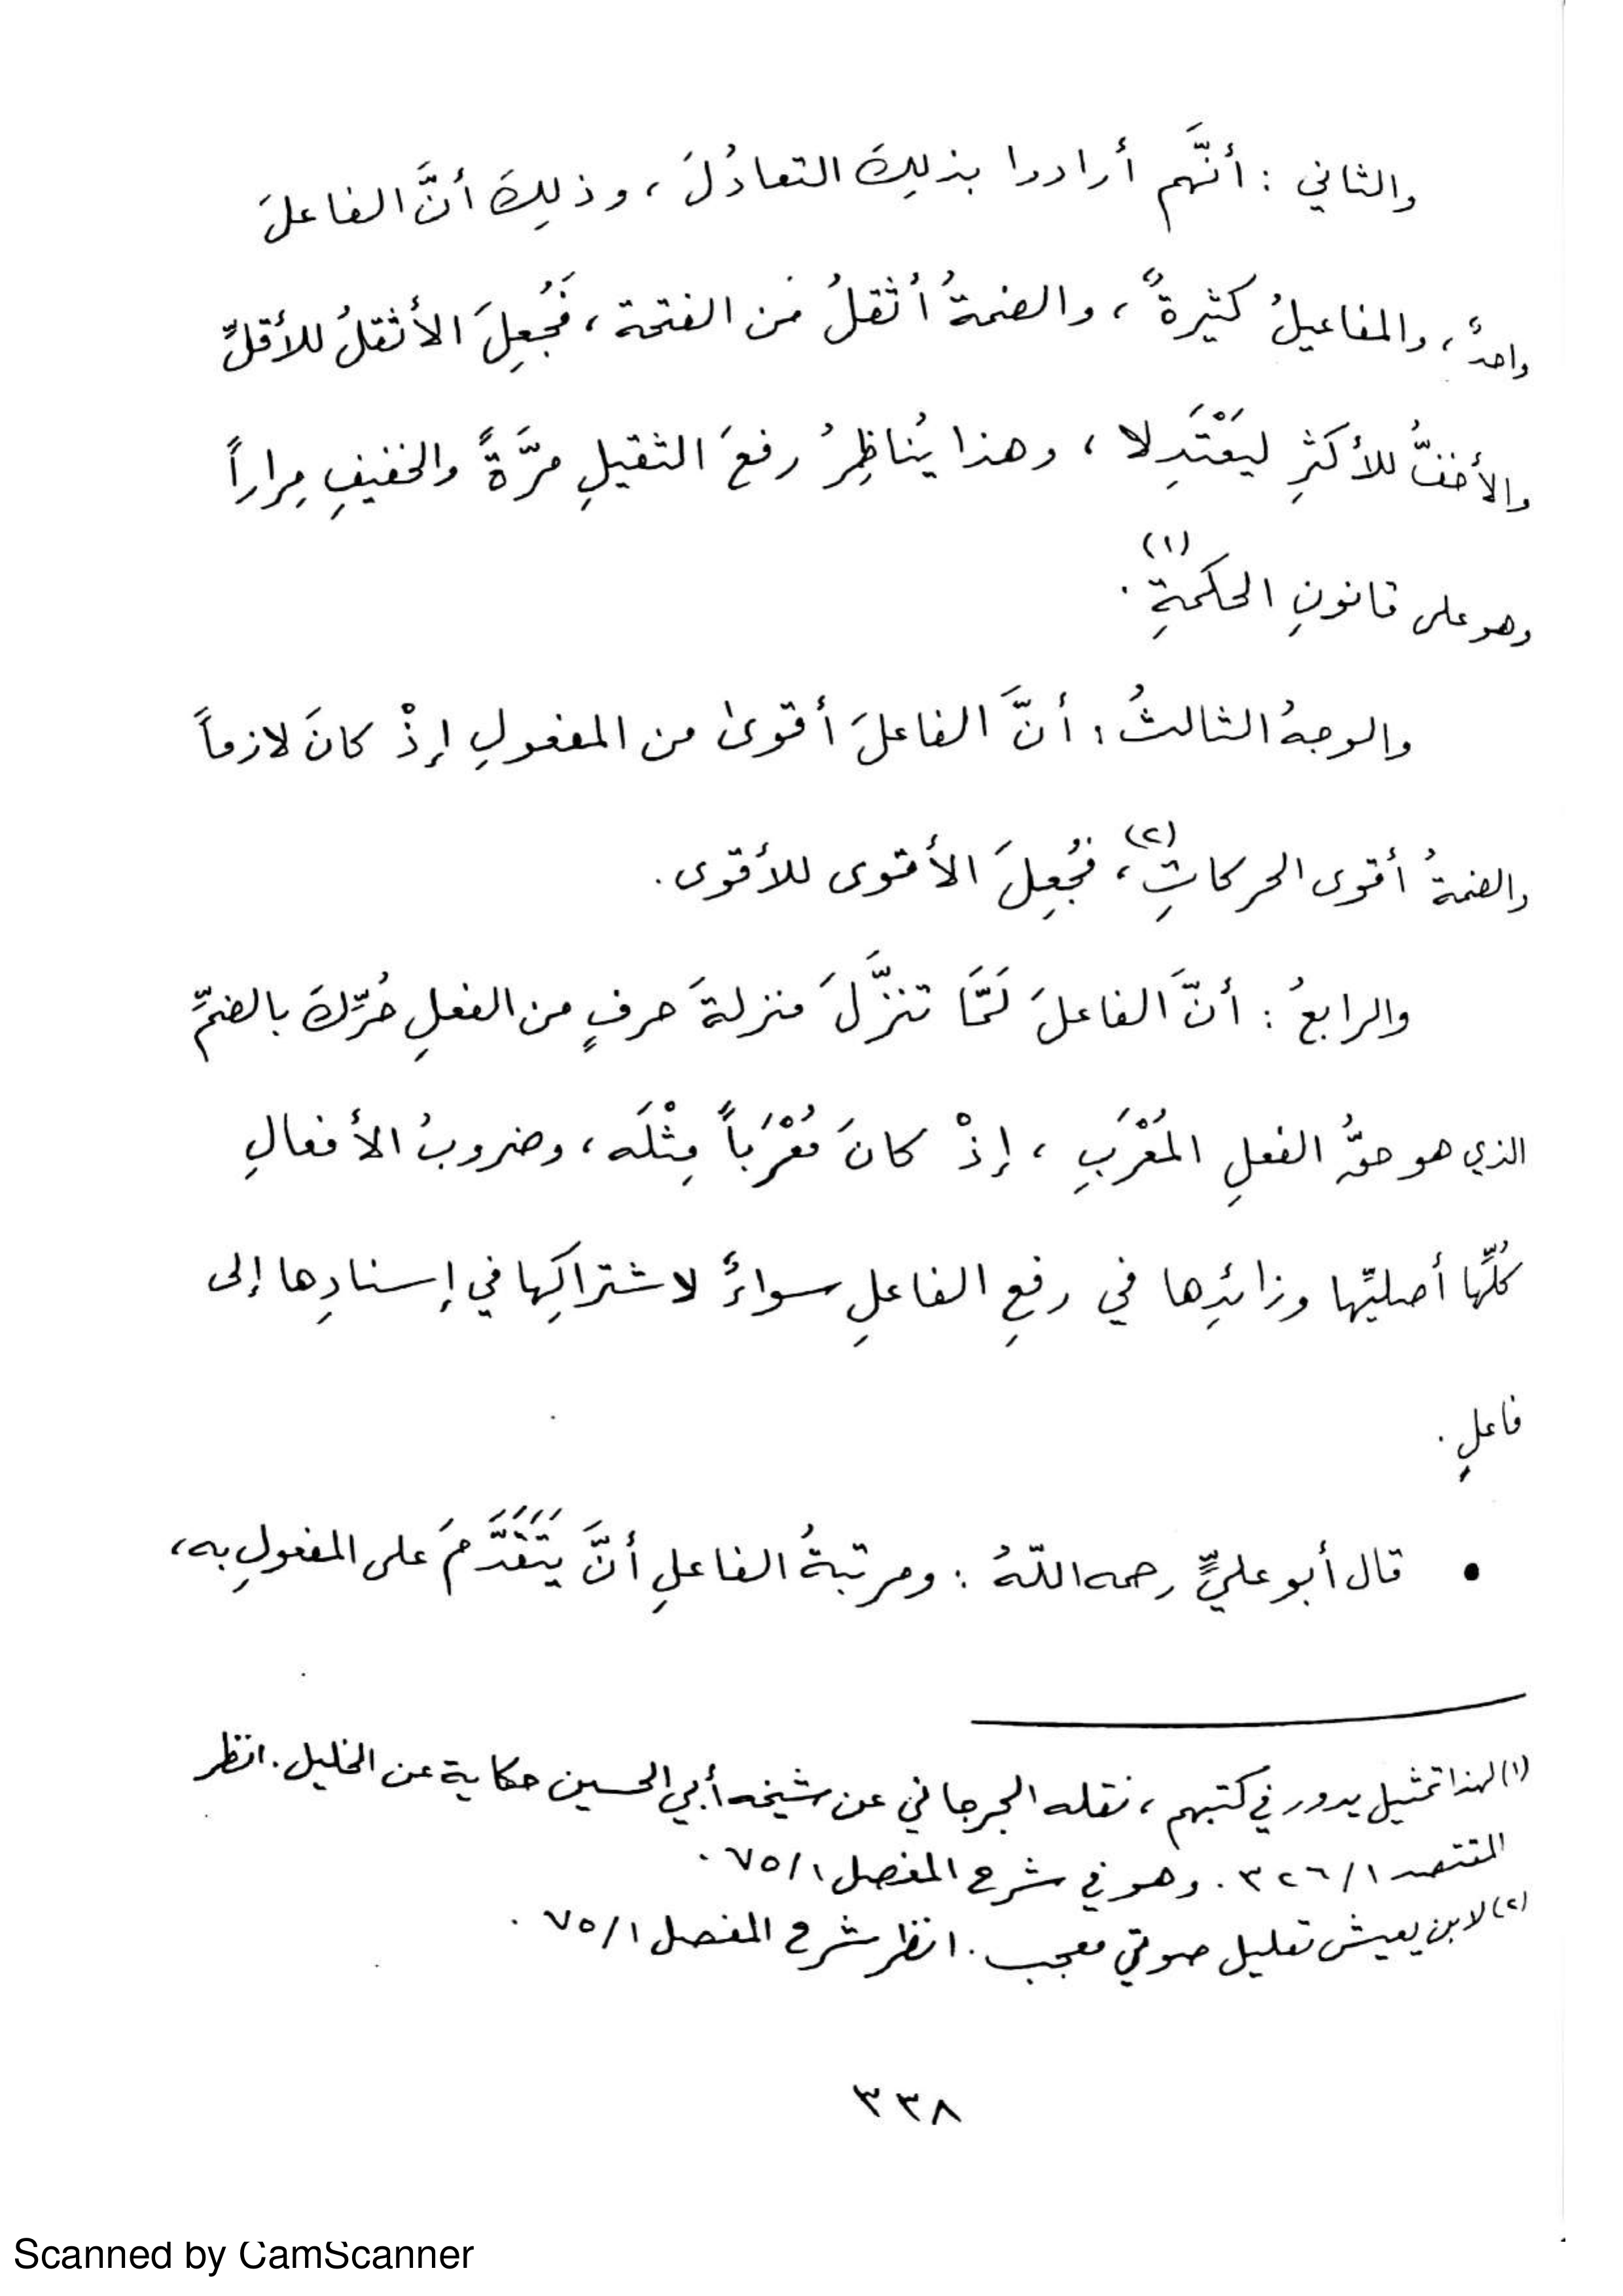 والثاني : أنَّهم أرادوا بذلِكَ التعادُلَ ، وذلِكَ أنَّ الفاعلَ
واحدٌ ، والمفاعيلُ كثيرةٌ ، والضمةُ أثقلُ من الفتحة ، فَجُعِلَ الأثقلُ للأقلِّ
والأخفُّ للأكثرِ ليَعْتَدِلا ، وهذا يُناظِرُ رفعَ الثقيلِ مرَّةً والخفيفِ مِراراً
وهو على قانونِ الحكمةِ (١) .
والوجهُ الثالثُ : أنَّ الفاعلَ أقوىٰ من المفعولِ إذْ كانَ لازماً
والضمةُ أقوى الحركاتِ (٢) ، فجُعِلَ الأقوى للأقوى .
والرابعُ : أنَّ الفاعلَ لَمَّا تنزَّلَ منزلةَ حرفٍ من الفعلِ حُرِّكَ بالضمِّ
الذي هو حقُّ الفعلِ المُعْرَبِ ، إذْ كانَ مُعْرَباً مِثْلَه ، وضروبُ الأفعالِ
كُلِّها أصليِّها وزائدِها في رفعِ الفاعلِ سواءٌ لاشتراكِها في إسنادِها إلى
فاعلٍ .
• قال أبو عليٍّ رحمه اللّهُ : ومرتبةُ الفاعلِ أنَّ يَتَقَدَّمَ على المفعولِ به ،
(١) لهذا تمثيل يدور في كتبهم ، نقله الجرجاني عن شيخه أبي الحسين حكاية عن الخليل . انظر
المقتصد ١/ ٣٢٦ . وهو في شرح المفصل ١/ ٧٥ .
(٢) لابن يعيش تعليل صوتي معجب . انظر شرح المفصل ١/ ٧٥ .
٣٣٨
Scanned by CamScanner